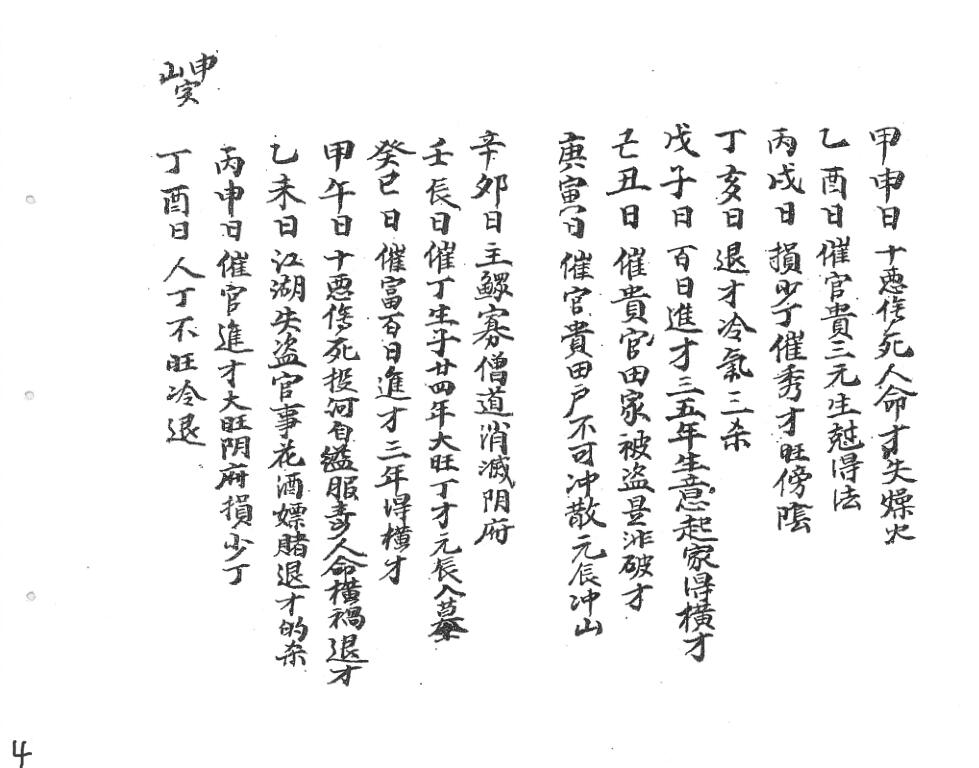 甲申日十悪傷死人命才失燥火
乙酉日催官貴三元生尅得法
丙戌日損少丁催秀才旺傍陰
丁亥日退才冷氣三杀
戊子日百日進才三五年生意起家得橫才
己丑日催貴官田家被盜是非破才
庚寅日催官貴田戶不可冲散元辰冲山
辛卯日主鰥寡僧道消滅阴府
壬辰日催丁生子廿四年大旺丁才元辰入墓
癸巳日催富百日進才三年得橫才
甲午日十悪傷死投河自縊服毒人命橫禍退才
乙未日江湖失盜官事花酒嫖賭退才的杀
丙申日催官進才大旺阴府損少丁
丁酉日人丁不旺冷退
申山寅
4